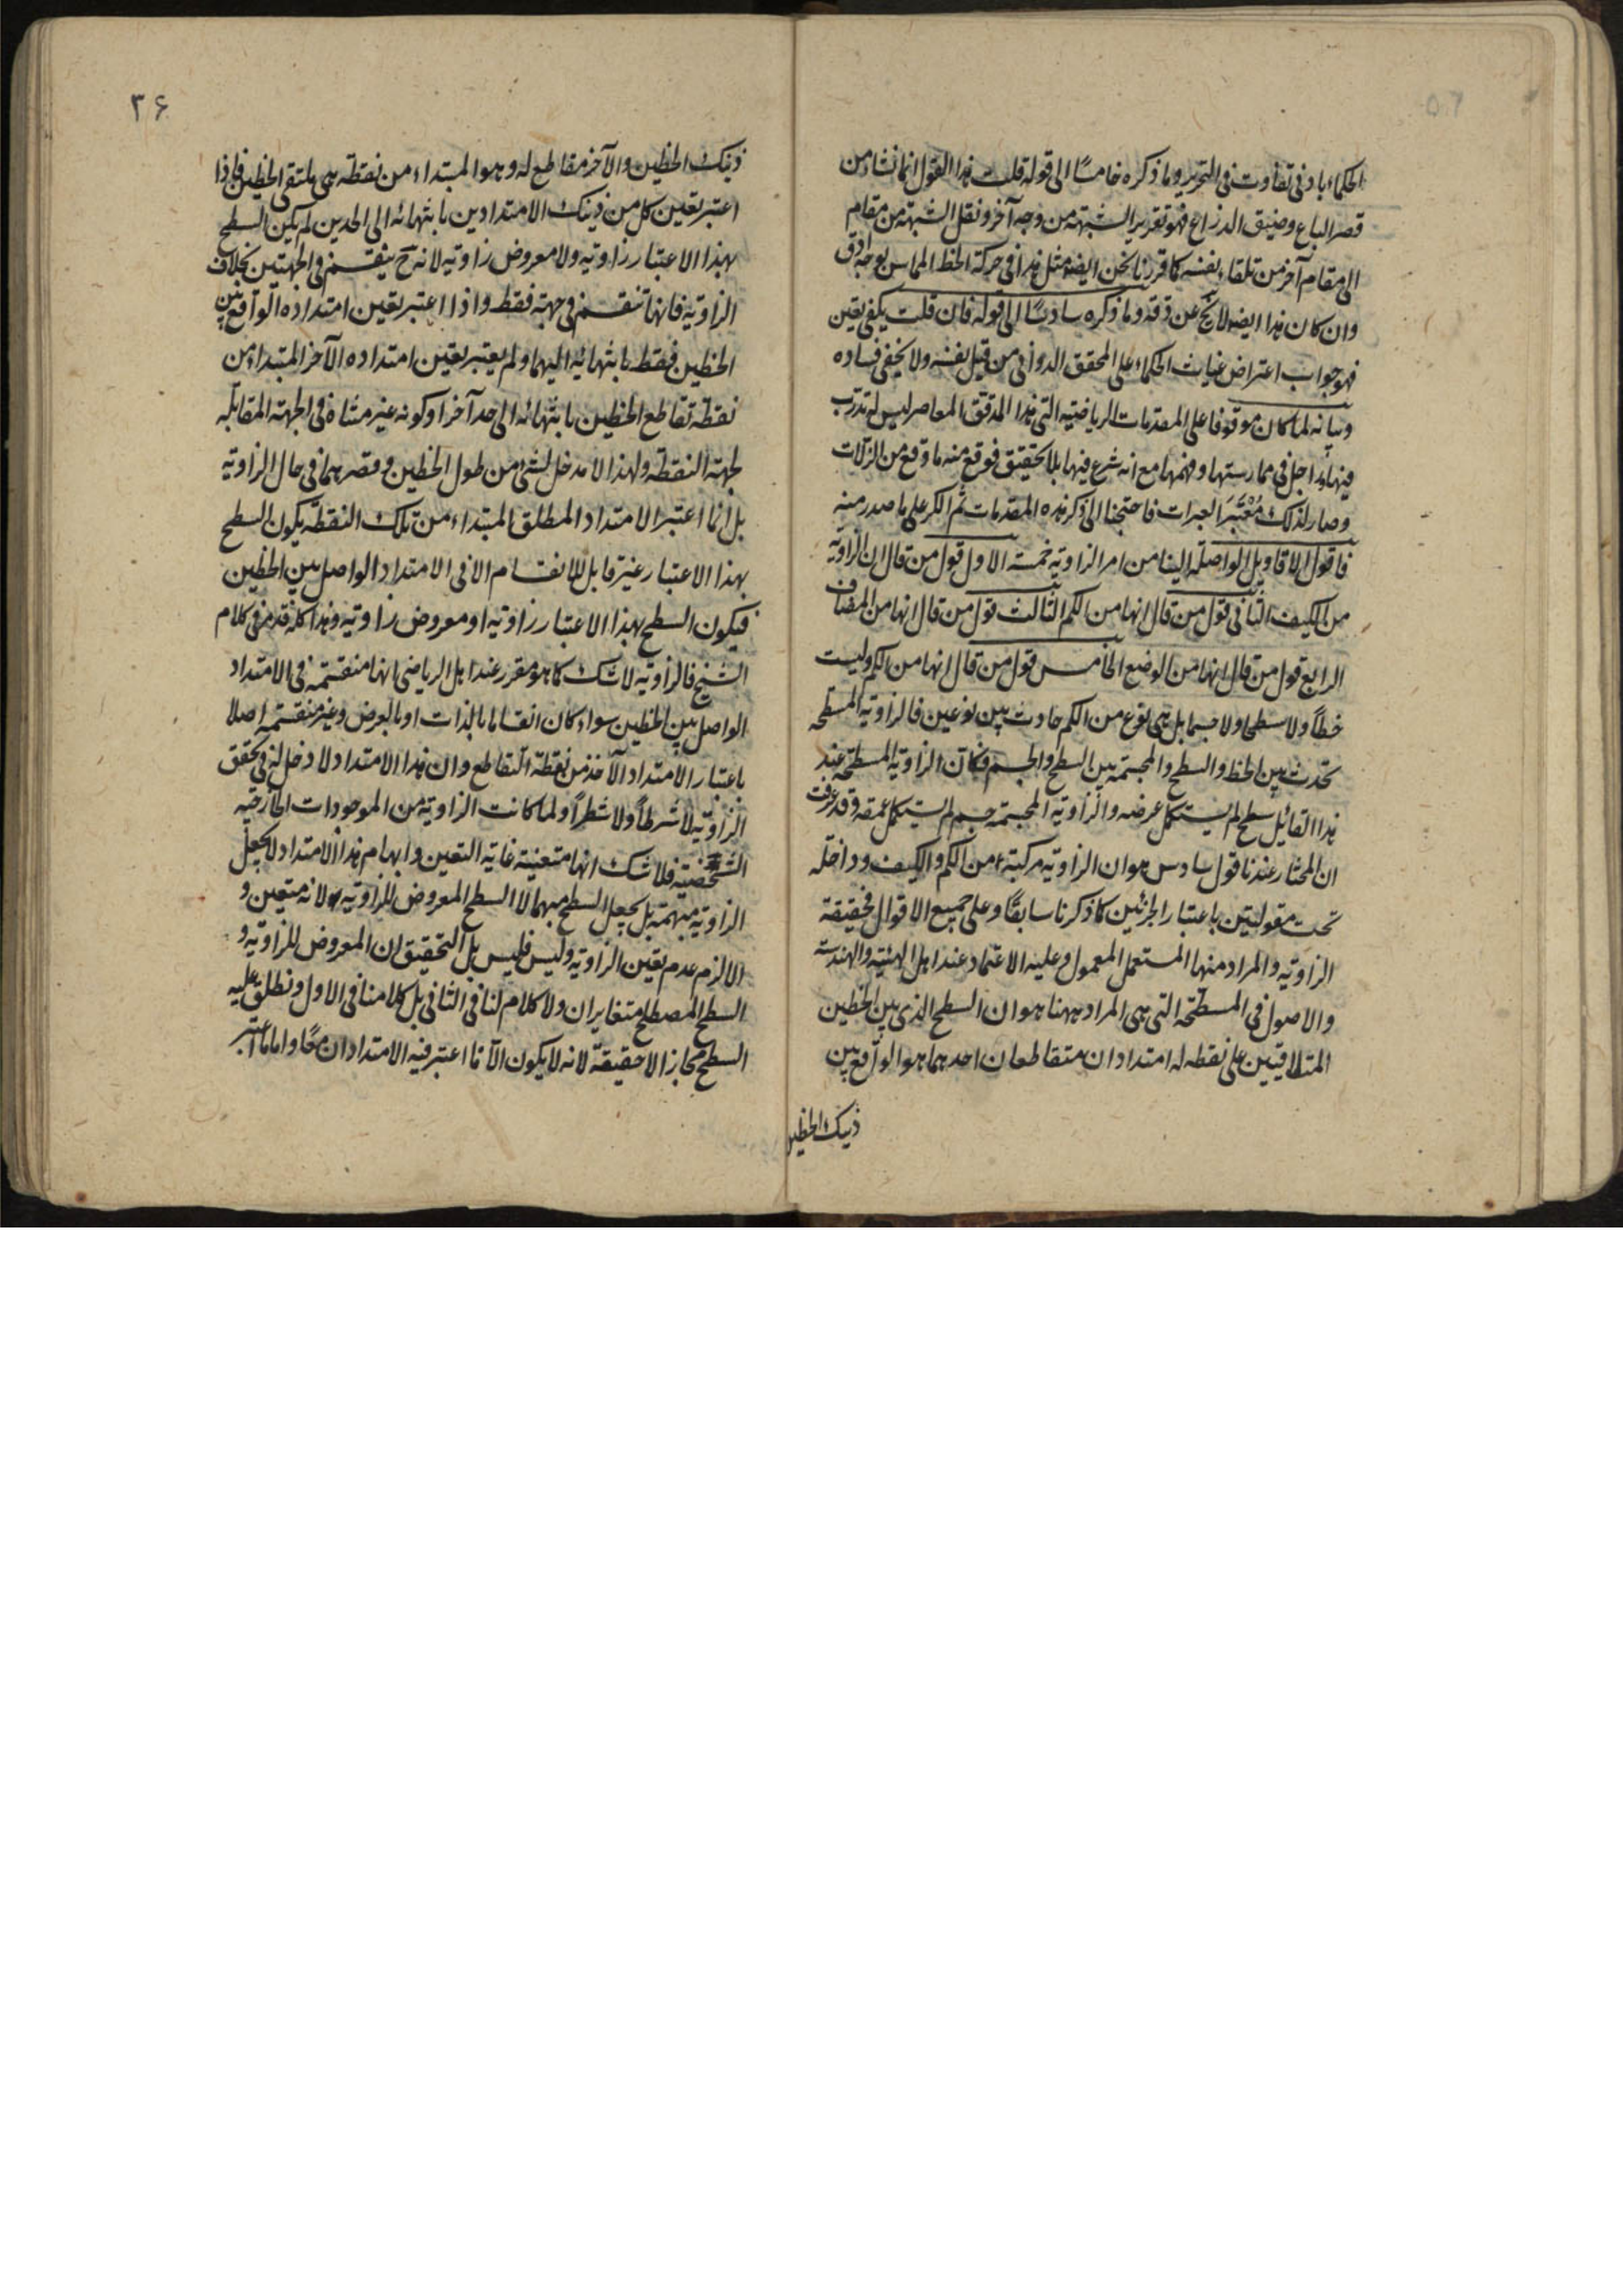 الحكماء بادنى تفاوت فى التحرير وما ذكره خامسًا الى قوله قلت هذا القول انما نشاء من
قصر الباع وضيق الذراع فهو تقرير الشبهة من وجه آخر ونقل الشبهة من مقام
الى مقام آخر من تلقاء نفسه كما قررنا نحن ايضا مثل هذا فى حركة الخط المماس بوجه ادق
وان كان هذا ايضا لا يخ عن دقة وما ذكره سادسًا الى قوله فان قلت يكفى تعين
فهو جواب اعتراض غياث الحكماء على المحقق الدوانى من قبل نفسه ولا يخفى فساده
وبيانه لما كان موقوفا على المقدمات الرياضية التى هذا المدقق المعاصر ليس له تدرب
فيها ولا اجل فى ممارستها وفهمها مع انه شرع فيها بلا تحقيق فوقع منه ما وقع من الزلات
وصار لذلك مُعْتَبَرَ العبرات فاحتجنا الى ذكر هذه المقدمات ثم الكر على ما صدر منه
فاقول الاقاويل الواصلة الينا من امر الزاوية خمسة الاول قول من قال ان الزاوية
من الكيف الثانى قول من قال انها من الكم الثالث قول من قال انها من المضاف
الرابع قول من قال انها من الوضع الخامس قول من قال انها من الكم وليست
خطاً ولا سطحا ولا جسما بل هى نوع من الكم حادث بين نوعين فالزاوية المسطحه
تحدث بين الخط والسطح والمجسمة بين السطح والجسم فكان الزاوية المسطحة عند
هذا القائل سطح لم يستكمل عرضه والزاوية المجسمة جسم لم يستكمل عمقه وقد عرفت
ان المختار عندنا قول سادس هو ان الزاوية مركبة من الكم والكيف وداخلة
تحت مقولتين باعتبار الجزئين كما ذكرنا سابقًا وعلى جميع الاقوال فحقيقة
الزاوية والمراد منها المستعمل المعمول وعليه الاعتماد عند اهل الهيئية والهندسة
والاصول فى المسطحة التى هى المراد ههنا هو ان السطح الذى بين الخطين
المتلاقيين على نقطه له امتدادان متقاطعان احدهما هو الواقع بين
ذينك الخطين
٣۶
ذينك الخطين والآخر مقاطع له وهو المبتداء من نقطة هى ملتقى الخطين فاذا
اعتبر تعين كل من ذينك الامتدادين بانتهائه الى الحدين لم يكن السطح
بهذا الاعتبار زاوية ولا معروض زاوية لانه ح ينقسم فى الجهتين بخلاف
الزاوية فانها تنقسم فى جهة فقط واذا اعتبر تعين امتداده الواقع بين
الخطين فقط بانتهائيه اليهما ولم يعتبر تعين امتداده الآخر المبتداء من
نقطة تقاطع الخطين بانتهائه الى حد آخر او كونه غير متناه فى الجهة المقابله
لجهة النقطة ولهذا لا مدخل لشئ من طول الخطين وقصرهما فى حال الزاوية
بل انما اعتبر الامتداد المطلق المبتداء من تلك النقطة يكون السطح
بهذا الاعتبار غير قابل للانقسام الا فى الامتداد الواصل بين الخطين
فيكون السطح بهذا الاعتبار زاوية او معروض زاوية وهذا كله قد مر فى كلام
الشيخ فالزاوية لا شك كما هو مقرر عند اهل الرياضى انها منقسمة فى الامتداد
الواصل بين الخطين سواء كان انقساما بالذات او بالعرض وغير منقسمة اصلا
باعتبار الامتداد الآخذ من نقطة التقاطع وان هذا الامتداد لا دخل له فى تحقق
الزاوية لا شرطاً ولا شطراً ولما كانت الزاوية من الموجودات الخارجيه
الشخصية فلا شك انها متعينة غاية التعين وابهام هذا الامتداد لا يجعل
الزاوية مبهمة بل يجعل السطح مبهما لا السطح المعروض للزاوية لانه متعين و
الا لزم عدم تعين الزاوية وليس فليس بل التحقيق ان المعروض للزاوية و
السطح المصطلح متغايران ولا كلام لنا فى الثانى بل كلامنا فى الاول ونطلق عليه
السطح مجازا لا حقيقة لانه لا يكون الا ما اعتبر فيه الامتدادان معًا واما ما اعتبر